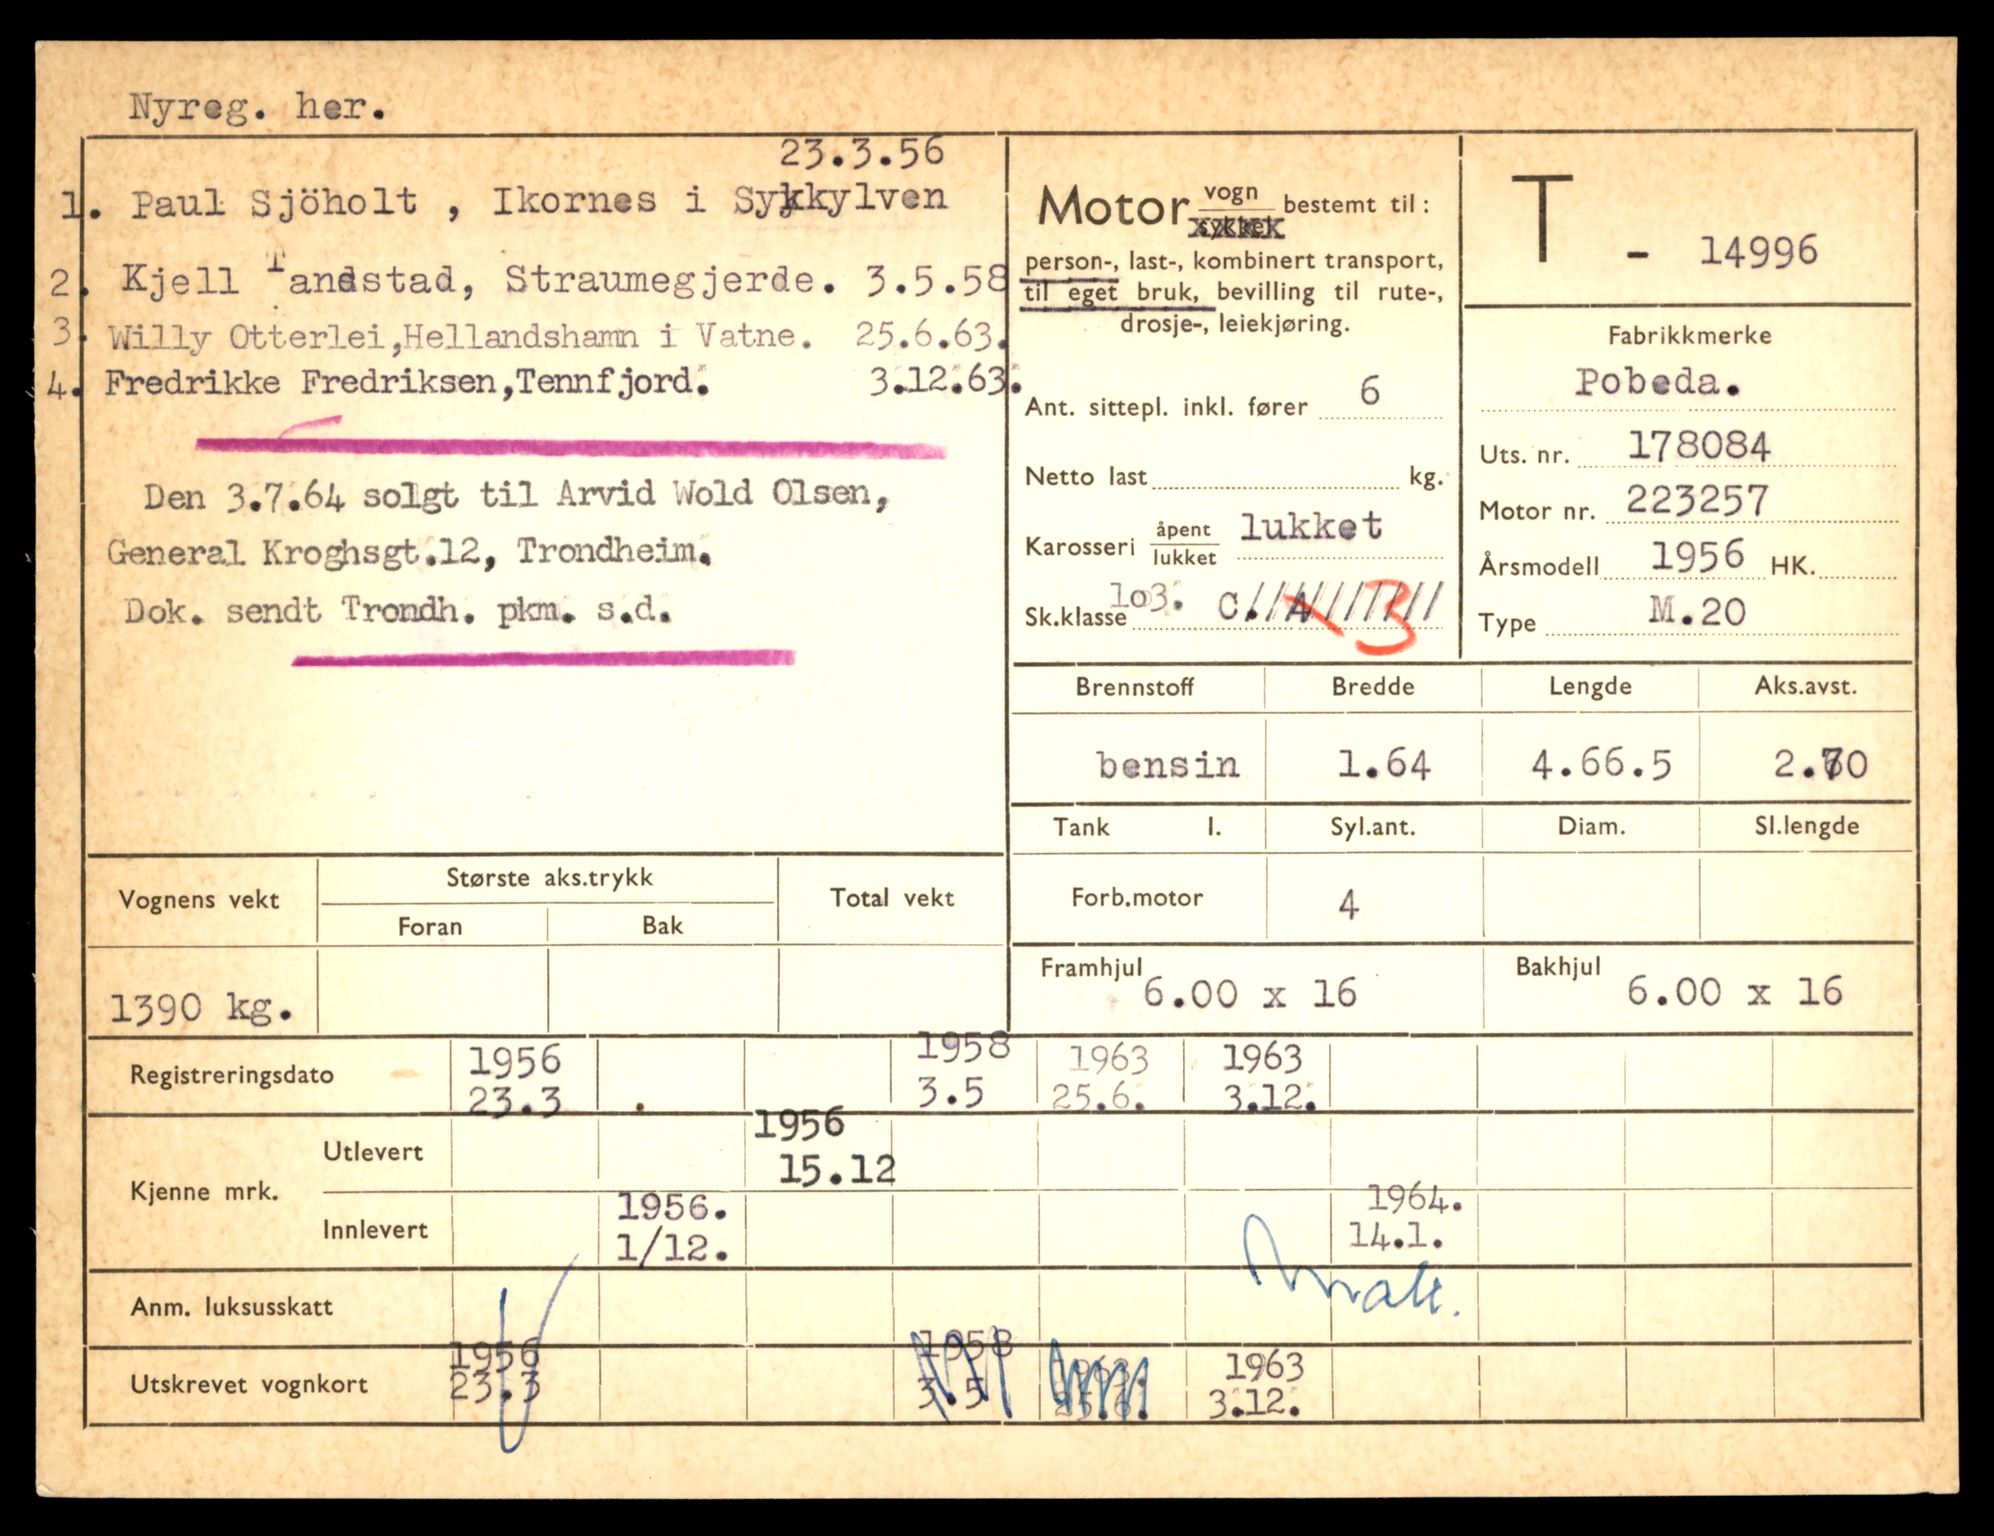 Nyreg. her.
23.3.56
1. Paul Sjöholt , Ikornes i Sykkylven
2. Kjell Tandstad, Straumegjerde. 3.5.58
3. Willy Otterlei,Hellandshamn i Vatne. 25.6.63.
4. Fredrikke Fredriksen,Tennfjord. 3.12.63.
Den 3.7.64 solgt til Arvid Wold Olsen,
General Kroghsgt.12, Trondheim.
Dok. sendt Trondh. pkm. s.d.
Motor vogn bestemt til:
sykkel
person-, last-, kombinert transport,
til eget bruk, bevilling til rute-,
drosje-, leiekjøring.
Ant. sittepl. inkl. fører 6
Netto last kg.
Karosseri åpent lukket lukket
Sk.klasse 1o3. C. A 3
T - 14996
Fabrikkmerke
Pobeda.
Uts. nr. 178084
Motor nr. 223257
Årsmodell 1956 HK.
Type M.20
Brennstoff Bredde Lengde Aks.avst.
bensin 1.64 4.66.5 2.70
Tank l. Syl.ant. Diam. Sl.lengde
Forb.motor 4
Framhjul 6.00 x 16 Bakhjul 6.00 x 16
Vognens vekt Største aks.trykk Total vekt
Foran Bak
1390 kg.
Registreringsdato 1956 1958 1963 1963
23.3 . 3.5 25.6. 3.12.
Kjenne mrk. Utlevert 1956
15.12
Innlevert 1956. 1964.
1/12. 14.1.
Anm. luksusskatt
Utskrevet vognkort 1956 1958 1963. 1963
23.3 3.5 25.6. 3.12.